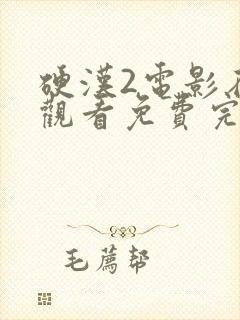 硬漢2電影
觀看免費完
毛薦幫